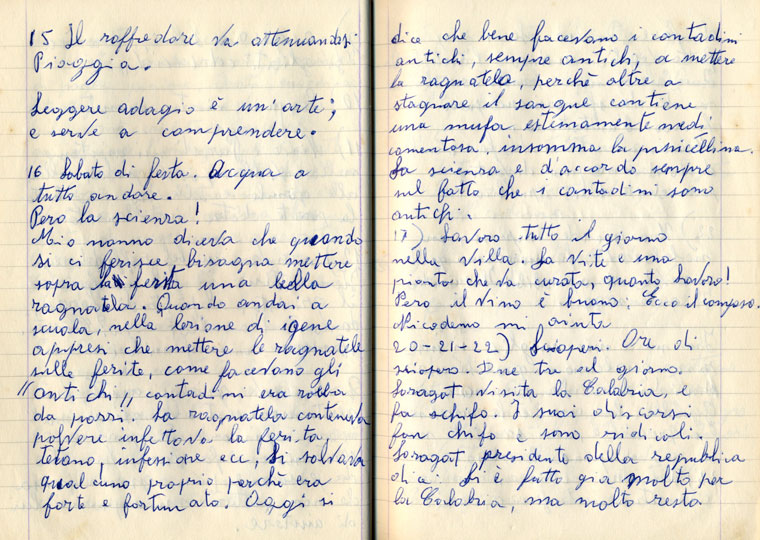 15 Il raffredore va attenuandosi
Pioggia.
Leggere adagio è un'arte;
e serve a comprendere.
16 Sabato di festa. Acqua a
tutto andare.
Pero la scienza!
Mio nonno diceva che quando
si ci ferisce bisogna mettere
sopra la ferita una bella
ragnatela. Quando andai a
scuola, nella lezione di igene
appresi che mettere le ragnatele
sulle ferite, come facevano gli
"antichi,, contadini era robba
da pazzi. La ragnatela conteneva
polvere infettava la ferita,
tetano, infezione ecc, si salvava
qualcuno proprio perchè era
forte e fortunato. Oggi si
dice che bene facevano i contadini
antichi, sempre antichi, a mettere
la ragnatela, perchè oltre a
stagnare il sangue contiene
una muffa estremamente medi
camentosa, insomma la penicellina.
La scienza e d'accordo sempre
sul fatto che i contadini sono
antichi.
17) Lavoro tutto il giorno
nella villa. La vite e una
pianta che va curata, quanto lavoro!
Pero il vino è buono; Ecco il compenso.
Nicodemo mi aiuta
20-21-22) Scioperi. Ore di
sciopero. Due tre al giorno.
Saragat visita la Calabria, e
fa schifo. I suoi discorsi
fan chifo e sono ridicoli.
Saragat presidente della republica
dice: Si è fatto gia molto per
la Calabria, ma molto resta